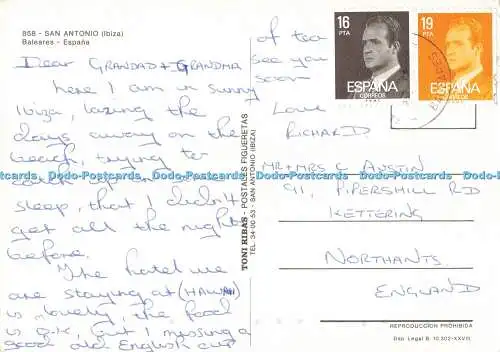 858 - SAN ANTONIO (Ibiza)
Baleares - España
Dear GRANDAD + GRANDMA
here I am in sunny
Ibiza, lazing the
days away on the
beach, trying to
catch up on the
sleep, that I didn't
get all the nights
before.
The hotel we
are staying at (HAWAII)
is lovely, the food
is o.k, but I missing a
good old English cup
of tea
see you
soon
Love
RICHARD
TONI RIBAS - POSTALES FIGUERETAS
TEL. 34 00 53 - SAN ANTONIO (IBIZA)
16
PTA
ESPAÑA
CORREOS
19
PTA
ESPAÑA
CORREOS
MR + MRS C AUSTIN
911, PIPERSHILL RD
KETTERING
NORTHANTS.
ENGLAND
REPRODUCCION PROHIBIDA
Dep. Legal B. 10.302-XXVIII
Dodo-Postcards Dodo-Postcards Dodo-Postcards Dodo-Postcards Dodo-Postcards Dodo-Postcards